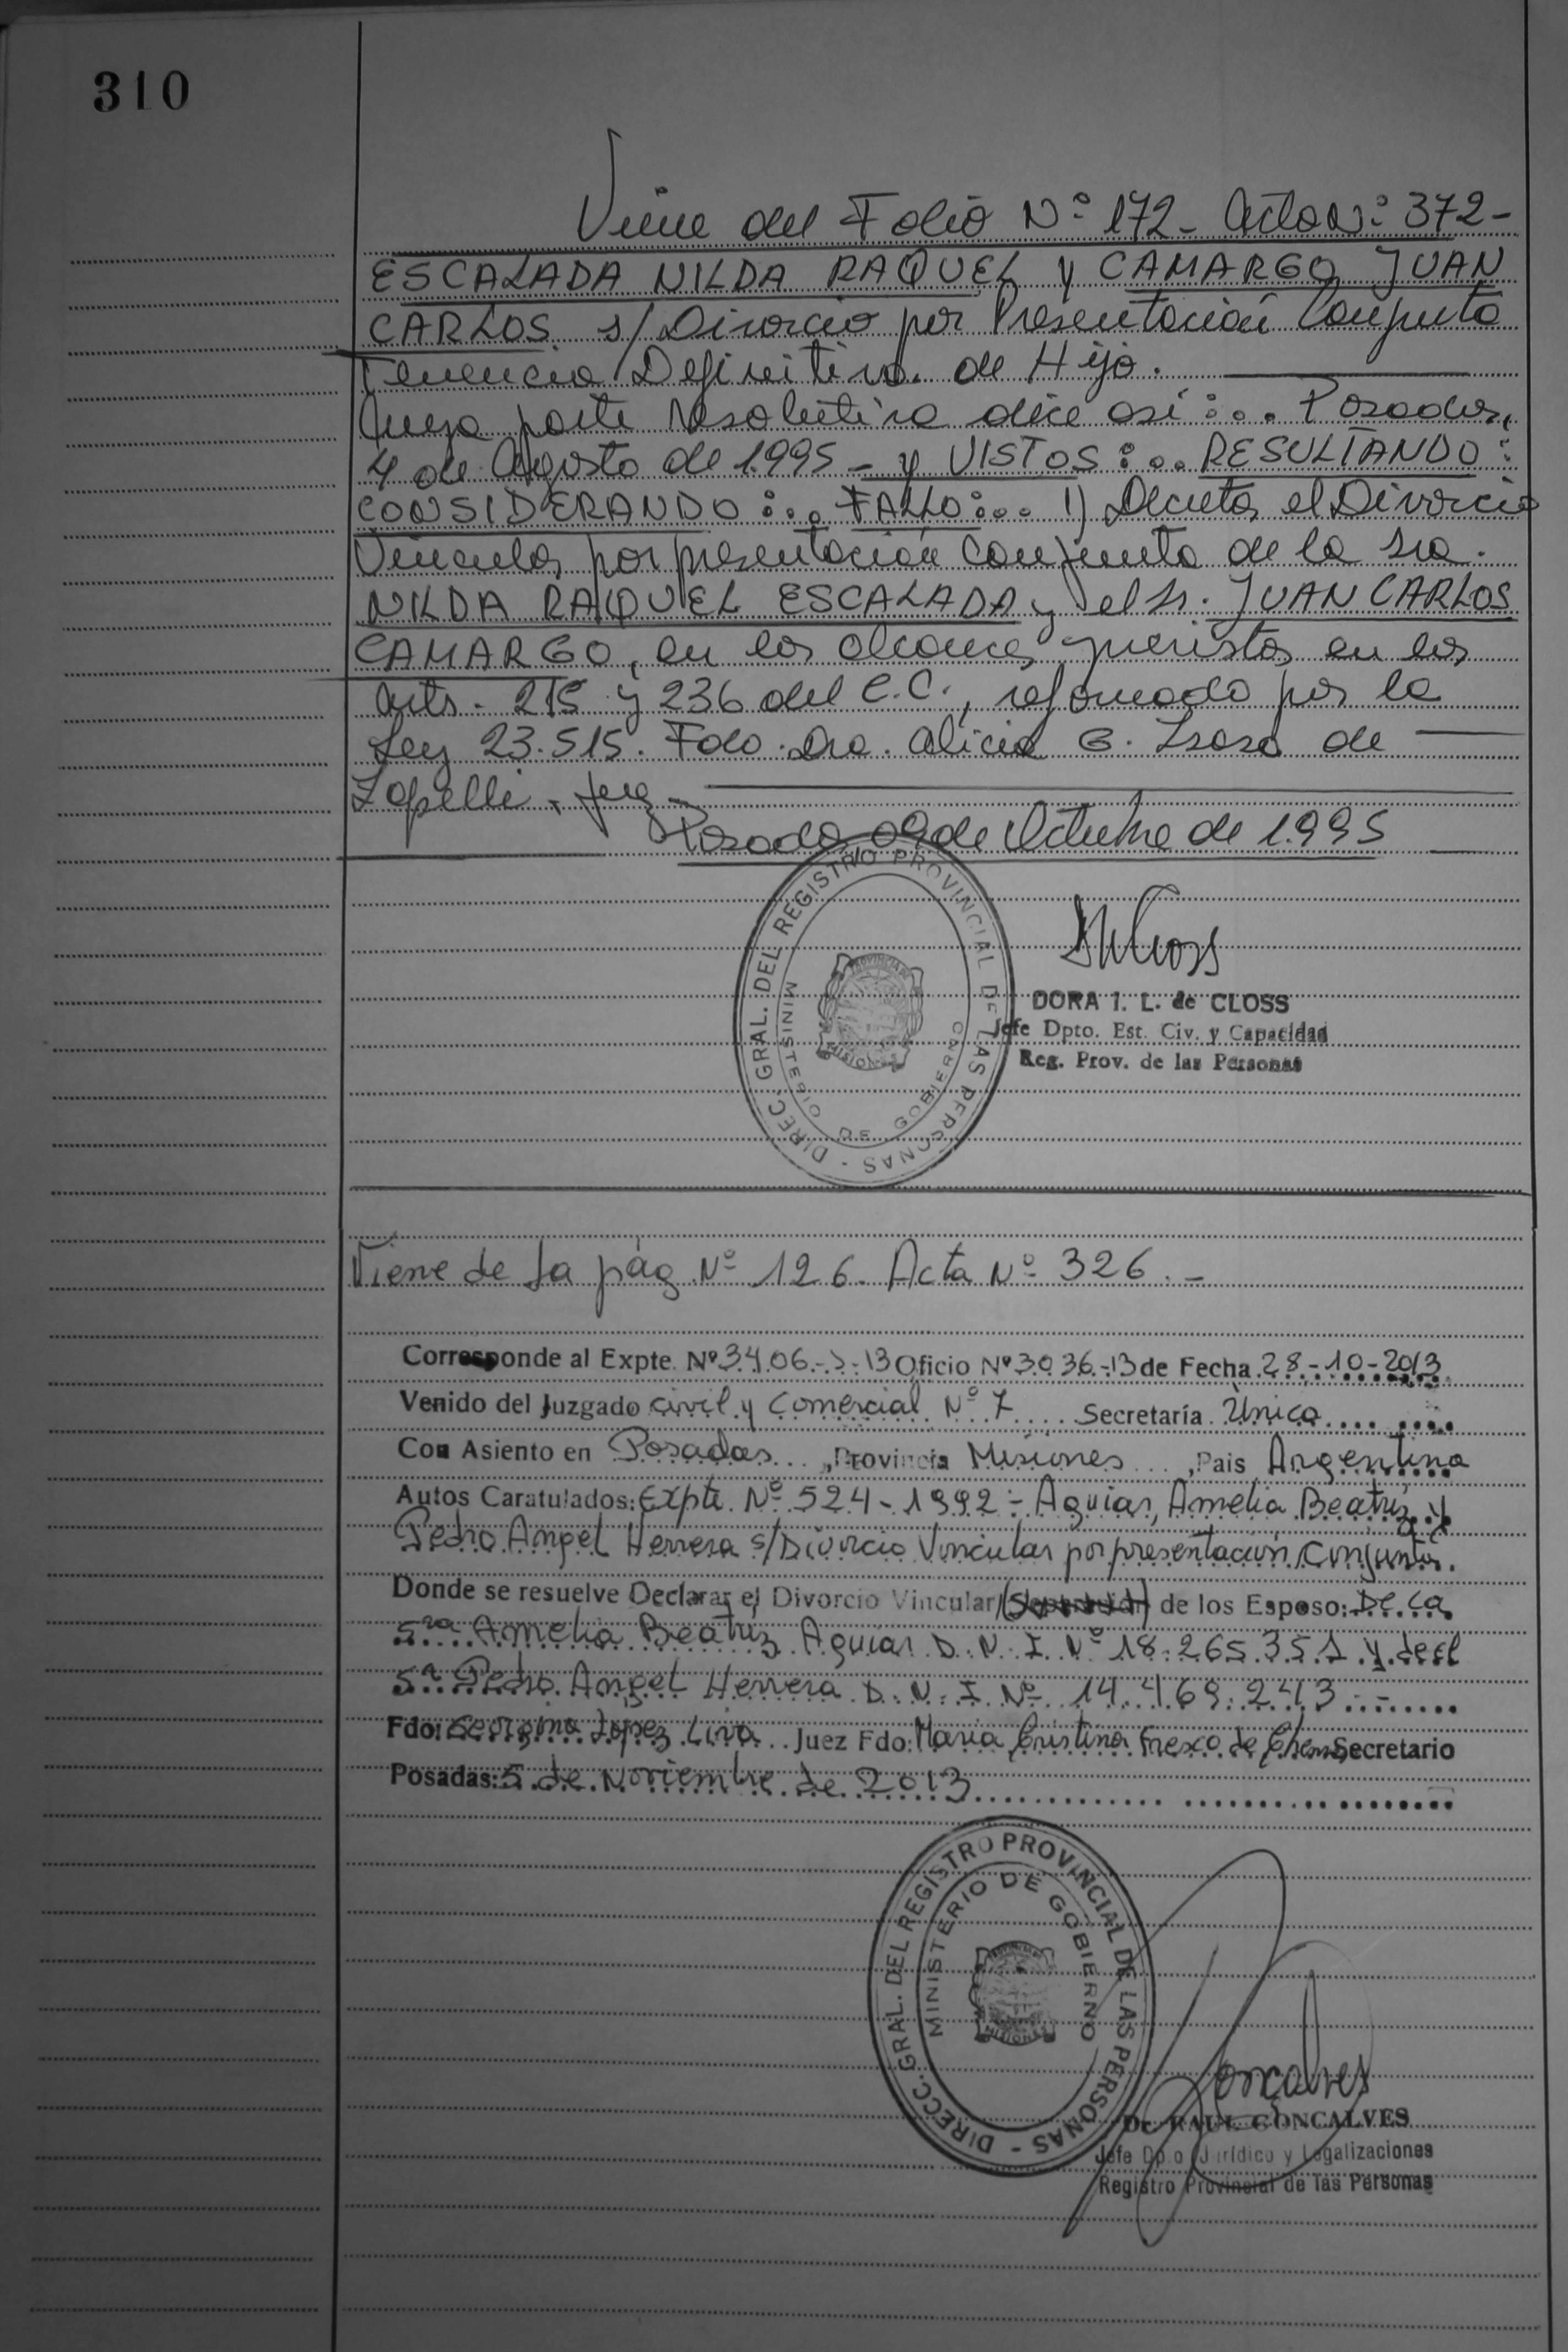 310
Viene del Folio Nº 172- Acta Nº 372-
ESCALADA NILDA RAQUEL y CAMARGO JUAN
CARLOS s/Divorcio por Presentación Conjunta
Tenencia Definitiva de Hijo.
Cuya parte resolutiva dice así:... Posadas,
4 de Agosto de 1.995 - y VISTOS:... RESULTANDO:
CONSIDERANDO:... FALLO:... 1) Decreta el Divorcio
Vincular por presentación Conjunta de la Sra.
NILDA RAQUEL ESCALADA y el Sr. JUAN CARLOS
CAMARGO, en los alcances previstos en los
Arts. 215 y 236 del C.C., reformado por la
Ley 23.515. Fdo. Dra. Alicia de
Juez
Posadas 09 de Octubre de 1.995
DIREC. GRAL. DEL REGISTRO PROVINCIAL DE LAS PERSONAS -
MINISTERIO DE GOBIERNO
PROVINCIA DE
MISIONES
DORA I. L. de CLOSS
Jefe Dpto. Est. Civ. y Capacidad
Reg. Prov. de las Personas
Viene de la pág Nº 126. Acta Nº 326.-
Corresponde al Expte. Nº 3406 13 Oficio Nº 3036-13 de Fecha 28-10-2013
Venido del Juzgado Civil y Comercial Nº 7 Secretaría Única
Con Asiento en Posadas, Provincia Misiones, Pais Argentina
Autos Caratulados: Expte. Nº 524-1992- Aguiar, Amelia Beatriz y
Pedro Angel Herrera s/Divorcio Vincular por presentación Conjunta.
Donde se resuelve Declarar el Divorcio Vincular de los Esposo: De La
Sra Amelia Beatriz Aguiar D.N.I Nº 18.265.351 y del
Sr. Pedro Angel Herrera D.N.I Nº 14.469.243.-
Fdo: Lopez Juez Fdo: Maria Cristina de Secretario
Posadas: 5 de Noviembre de 2013
DIRECC. GRAL. DEL REGISTRO PROVINCIAL DE LAS PERSONAS -
MINISTERIO DE GOBIERNO
MISIONES
Gonçalves
Dr. RAUL GONCALVES
Jefe Dpto. Jurídico y Legalizaciones
Registro Provincial de las Personas